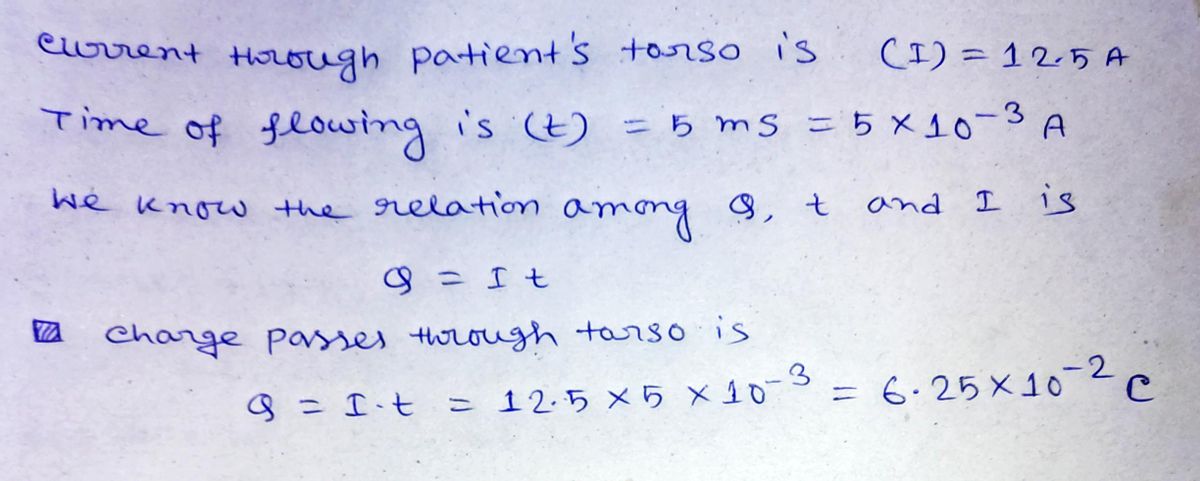 current through patient's torso is (I) = 12.5 A
Time of flowing is (t) = 5 ms = 5 × 10⁻³ A
We know the relation among Q, t and I is
Q = I t
charge passes through torso is
Q = I·t = 12.5 × 5 × 10⁻³ = 6.25 × 10⁻² C